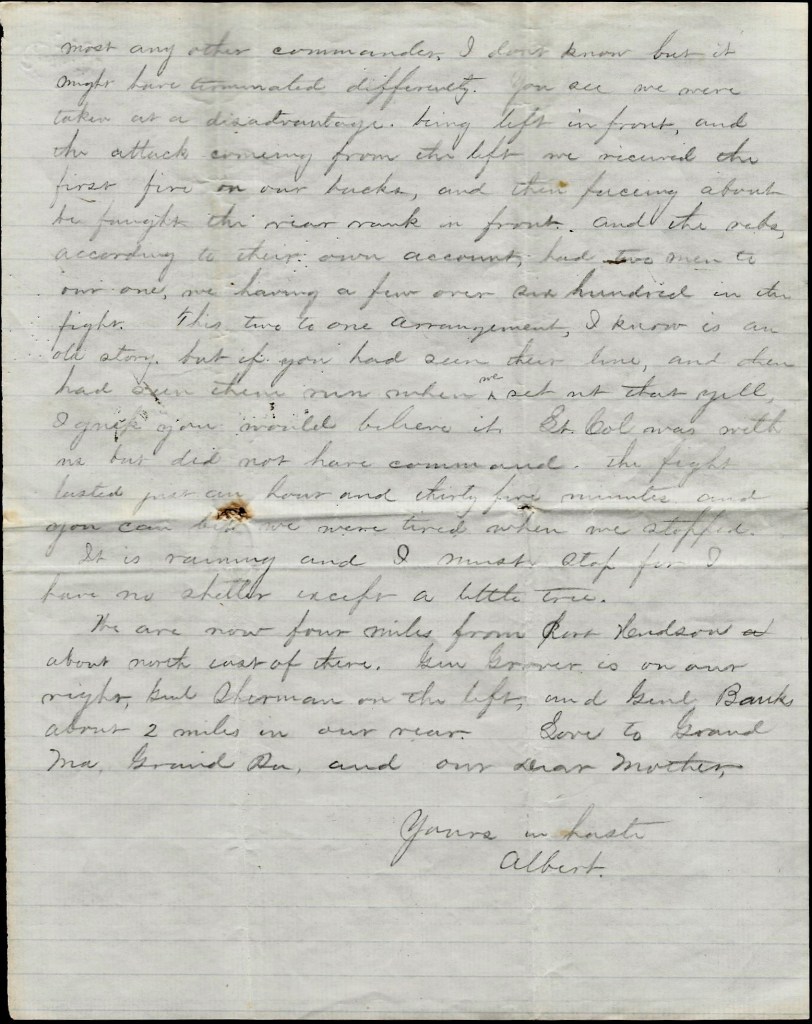 most any other commander, I don't know but it
might have terminated differently. You see we were
taken at a disadvantage. being left in front, and
the attack comeing from the left we recieved the
first fire on our backs, and then faceing about
be faught the rear rank in front. and the rebs,
according to their own account, had two men to
our one, we having a few over six hundred in the
fight. This two to one arrangement, I know is an
old story. but if you had seen their line, and then
had seen them run when we set up that yell,
I guess you would believe it. Lt. Col was with
us but did not have command. The fight
lasted just an hour and thirty five minutes and
you can bet we were tired when we stopped.
It is raining and I must stop for I
have no shelter except a little tree.
We are now four miles from Port Hudson a
about north east of there. Gen Grover is on our
right, Genl Sherman on the left, and Genl Banks
about 2 miles in our rear. Love to Grand
Ma, Grand Pa, and our dear Mother,
Yours in haste
Albert.